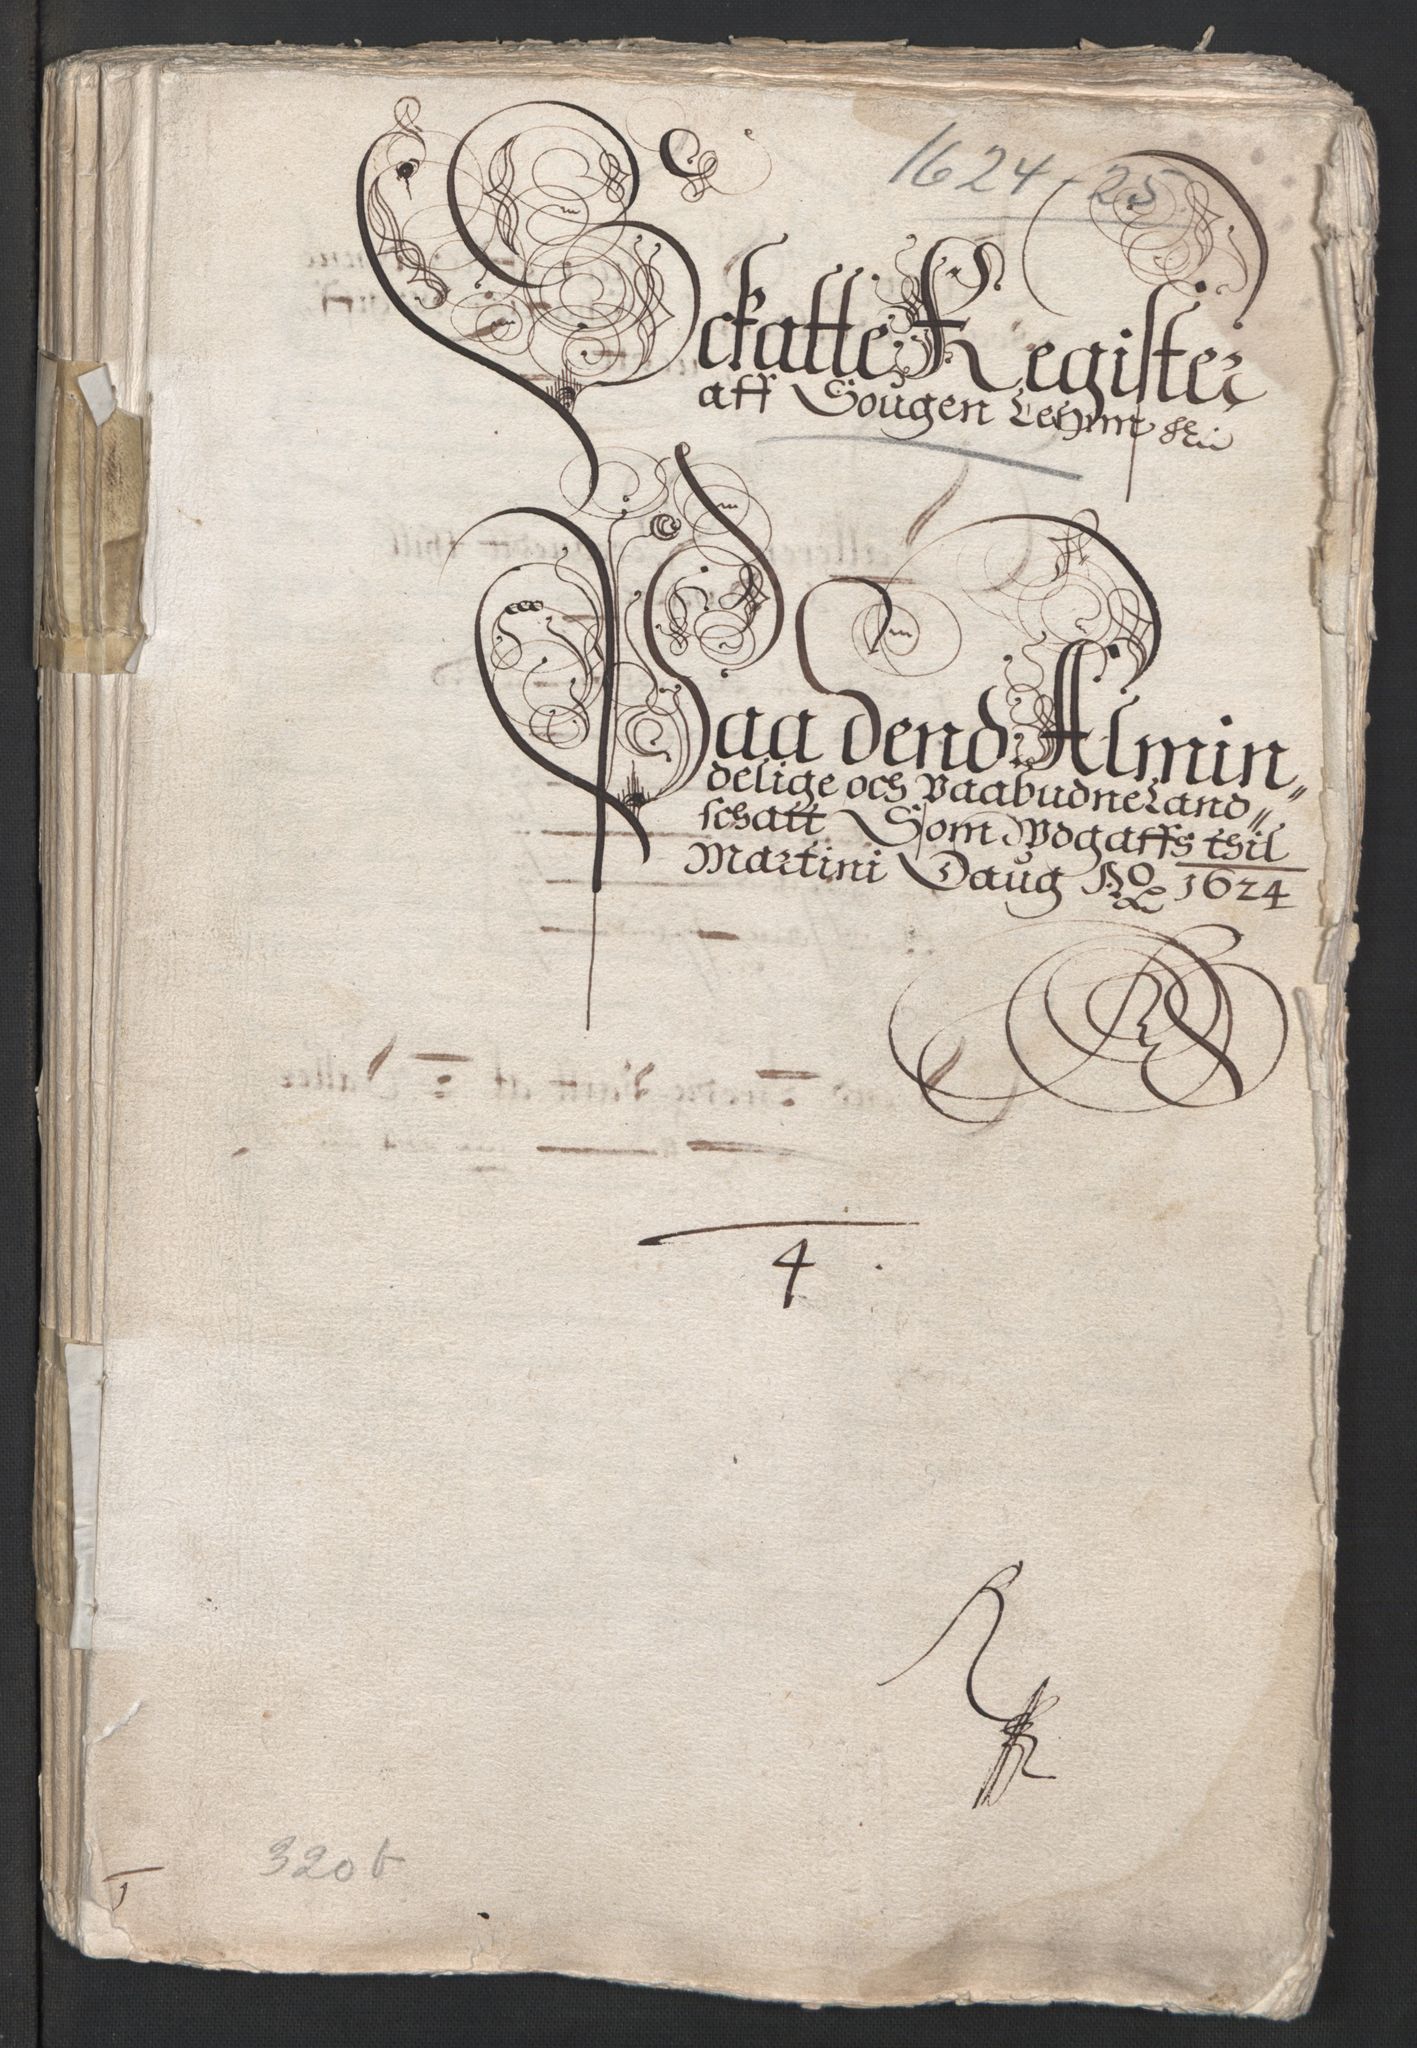 1624-25
Schatte Register
aff Sougen Lehnn
Paa dend Almin„
delige och Paabudne Land„
schatt Som Vdgaffs thil
Martini Daug Ao 1624
4
320 b
1